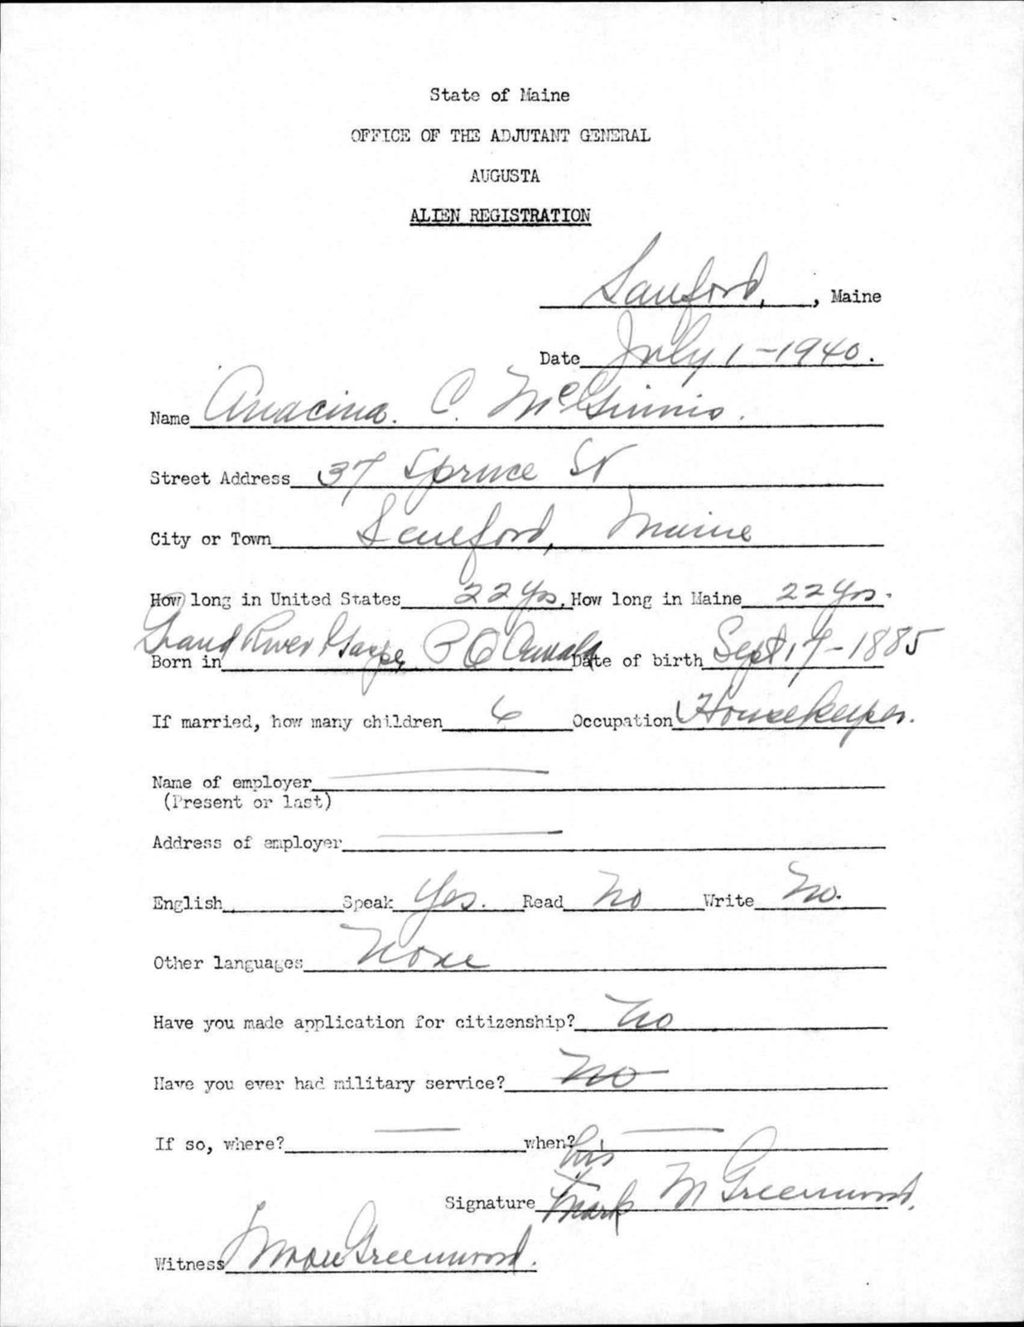 State of Maine
OFFICE OF THE ADJUTANT GENERAL
AUGUSTA
ALIEN REGISTRATION
Sanford, , Maine
Date July 1-1940.
Name Anacina. C. McGinnis.
Street Address 37 Spruce St
City or Town Sanford, Maine
How long in United States 22 yrs. How long in Maine 22 yrs.
Born in Grand River Gaspe, P Q Canada Date of birth Sept 17-1885
If married, how many children 6 Occupation Housekeeper.
Name of employer
(Present or last)
Address of employer
English Speak Yes. Read No Write No.
Other languages None
Have you made application for citizenship? No
Have you ever had military service? No
If so, where? when?
his
Signature mark M Greenwood.
Witness Greenwood.